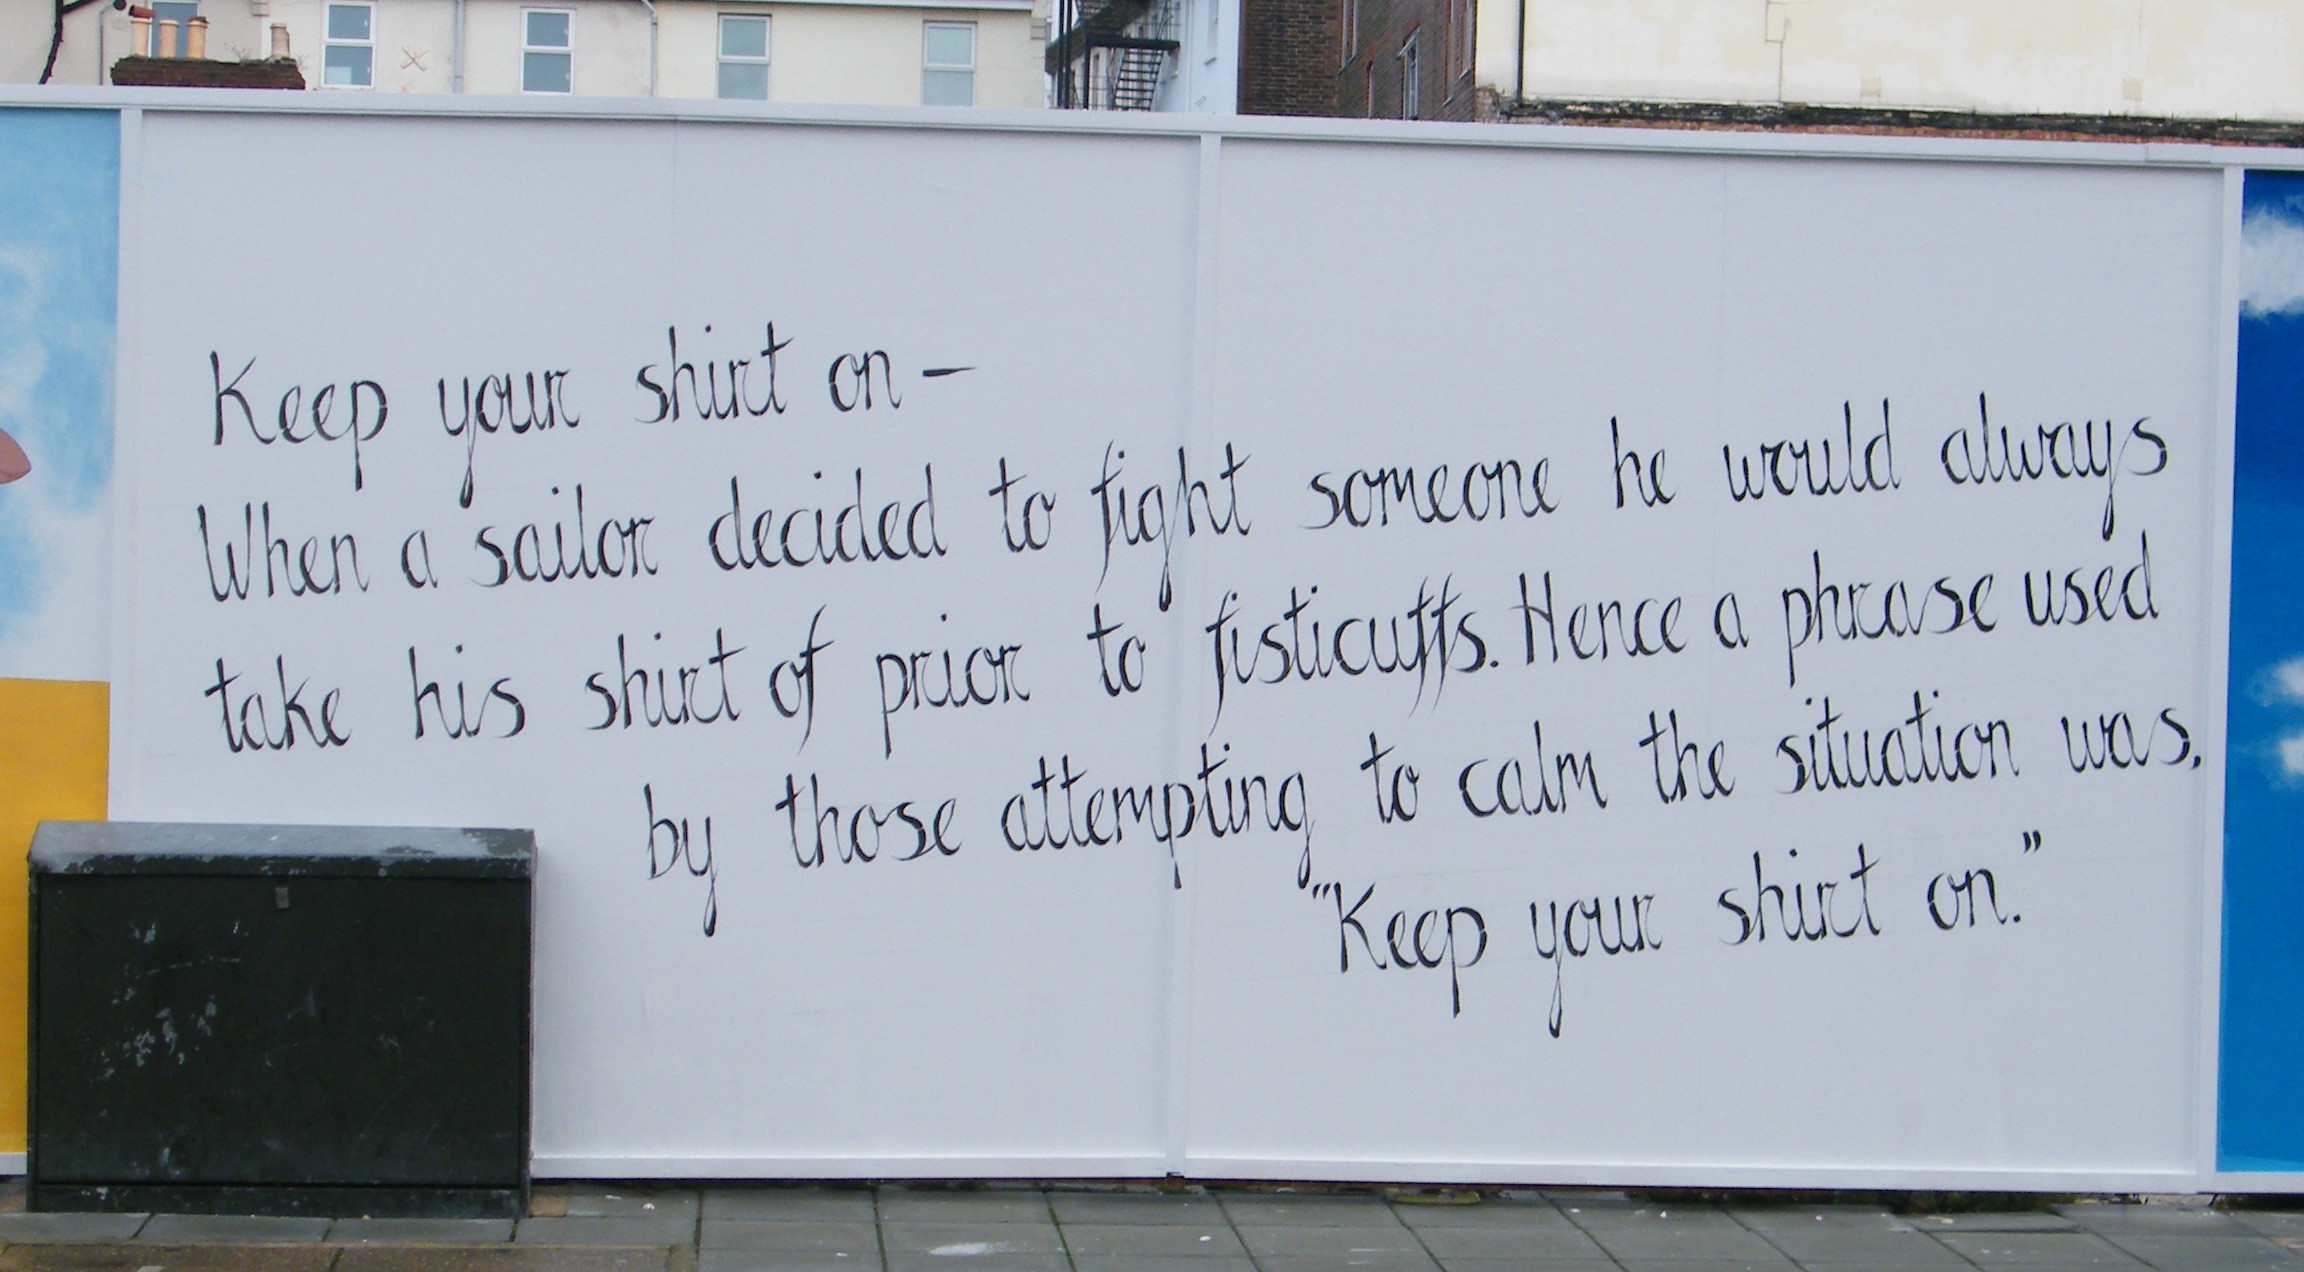 Keep your shirt on –
When a sailor decided to fight someone he would always
take his shirt of prior to fisticuffs. Hence a phrase used
by those attempting to calm the situation was,
"Keep your shirt on."